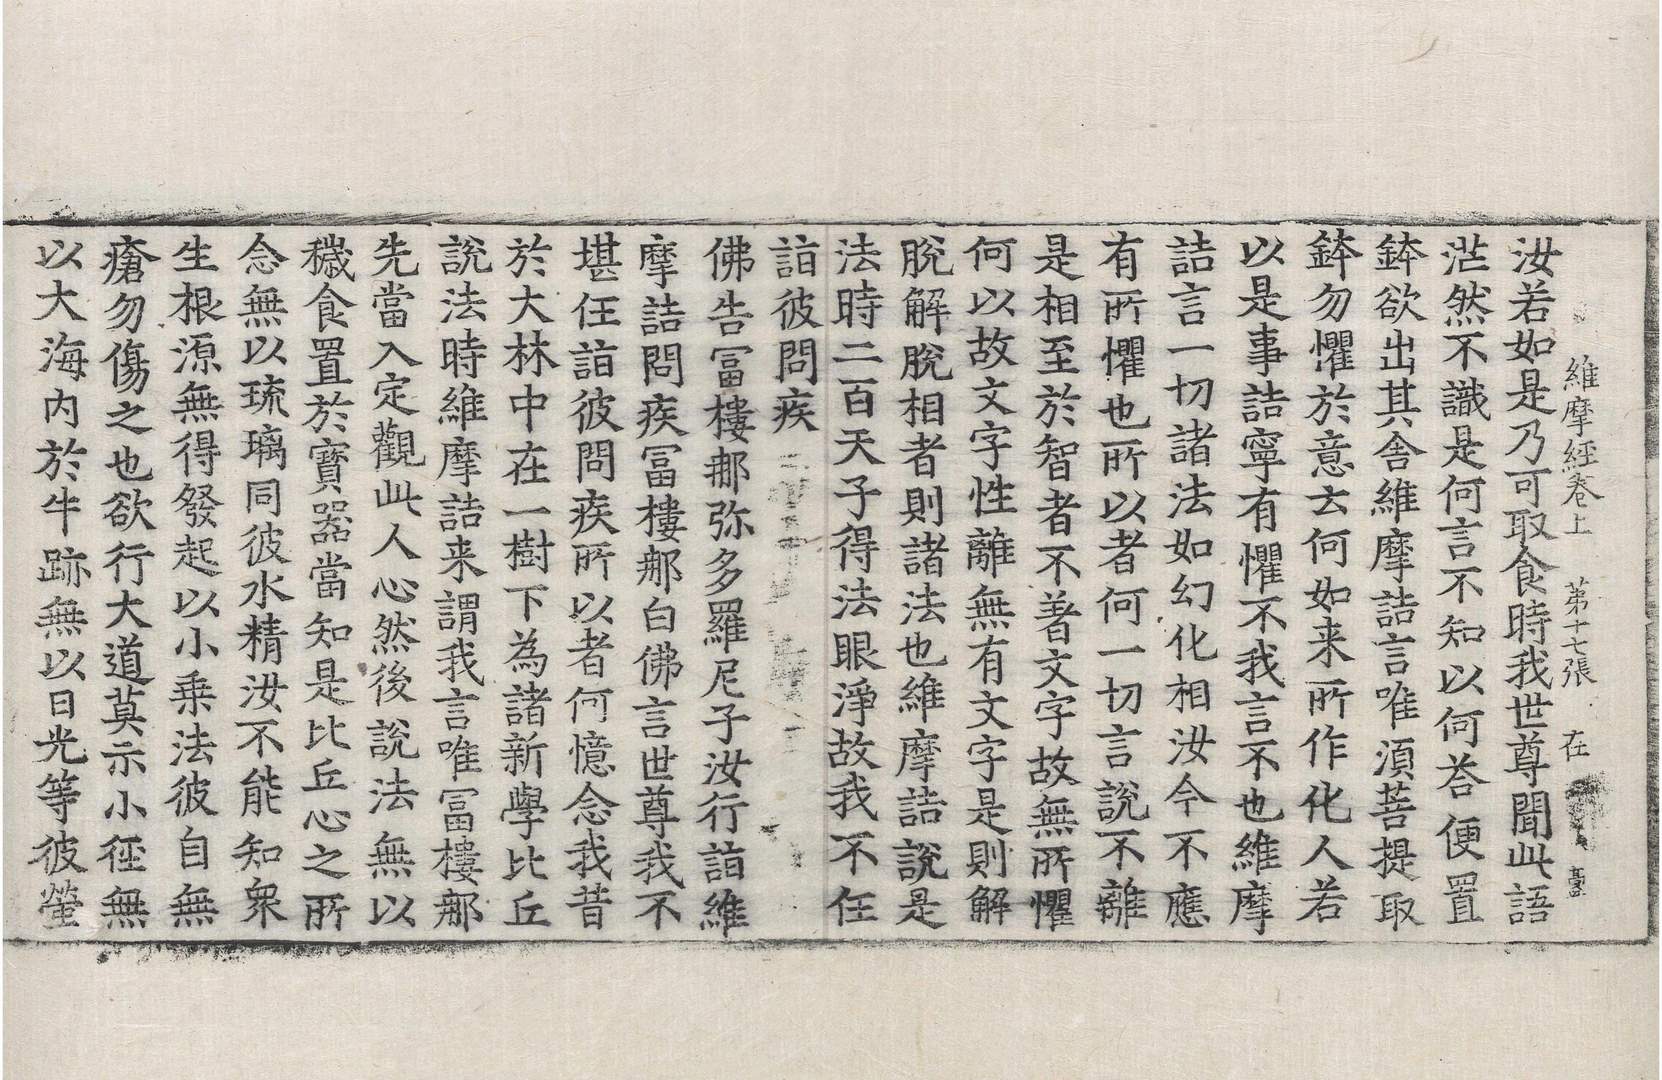 維摩經卷上 第十七張 在
汝若如是乃可取食時我世尊聞此語
茫然不識是何言不知以何荅便置
鉢欲出其舍維摩詰言唯須菩提取
鉢勿懼於意云何如来所作化人若
以是事詰寧有懼不我言不也維摩
詰言一切諸法如幻化相汝今不應
有所懼也所以者何一切言說不離
是相至於智者不著文字故無所懼
何以故文字性離無有文字是則解
脫解脫相者則諸法也維摩詰說是
法時二百天子得法眼淨故我不任
詣彼問疾
佛告冨樓那弥多羅尼子汝行詣維
摩詰問疾冨樓那白佛言世尊我不
堪任詣彼問疾所以者何憶念我昔
於大林中在一樹下為諸新學比丘
說法時維摩詰来謂我言唯冨樓那
先當入定觀此人心然後說法無以
穢食置於寶器當知是比丘心之所
念無以琉璃同彼水精汝不能知衆
生根源無得發起以小乗法彼自無
瘡勿傷之也欲行大道莫示小徑無
以大海内於牛跡無以日光等彼螢